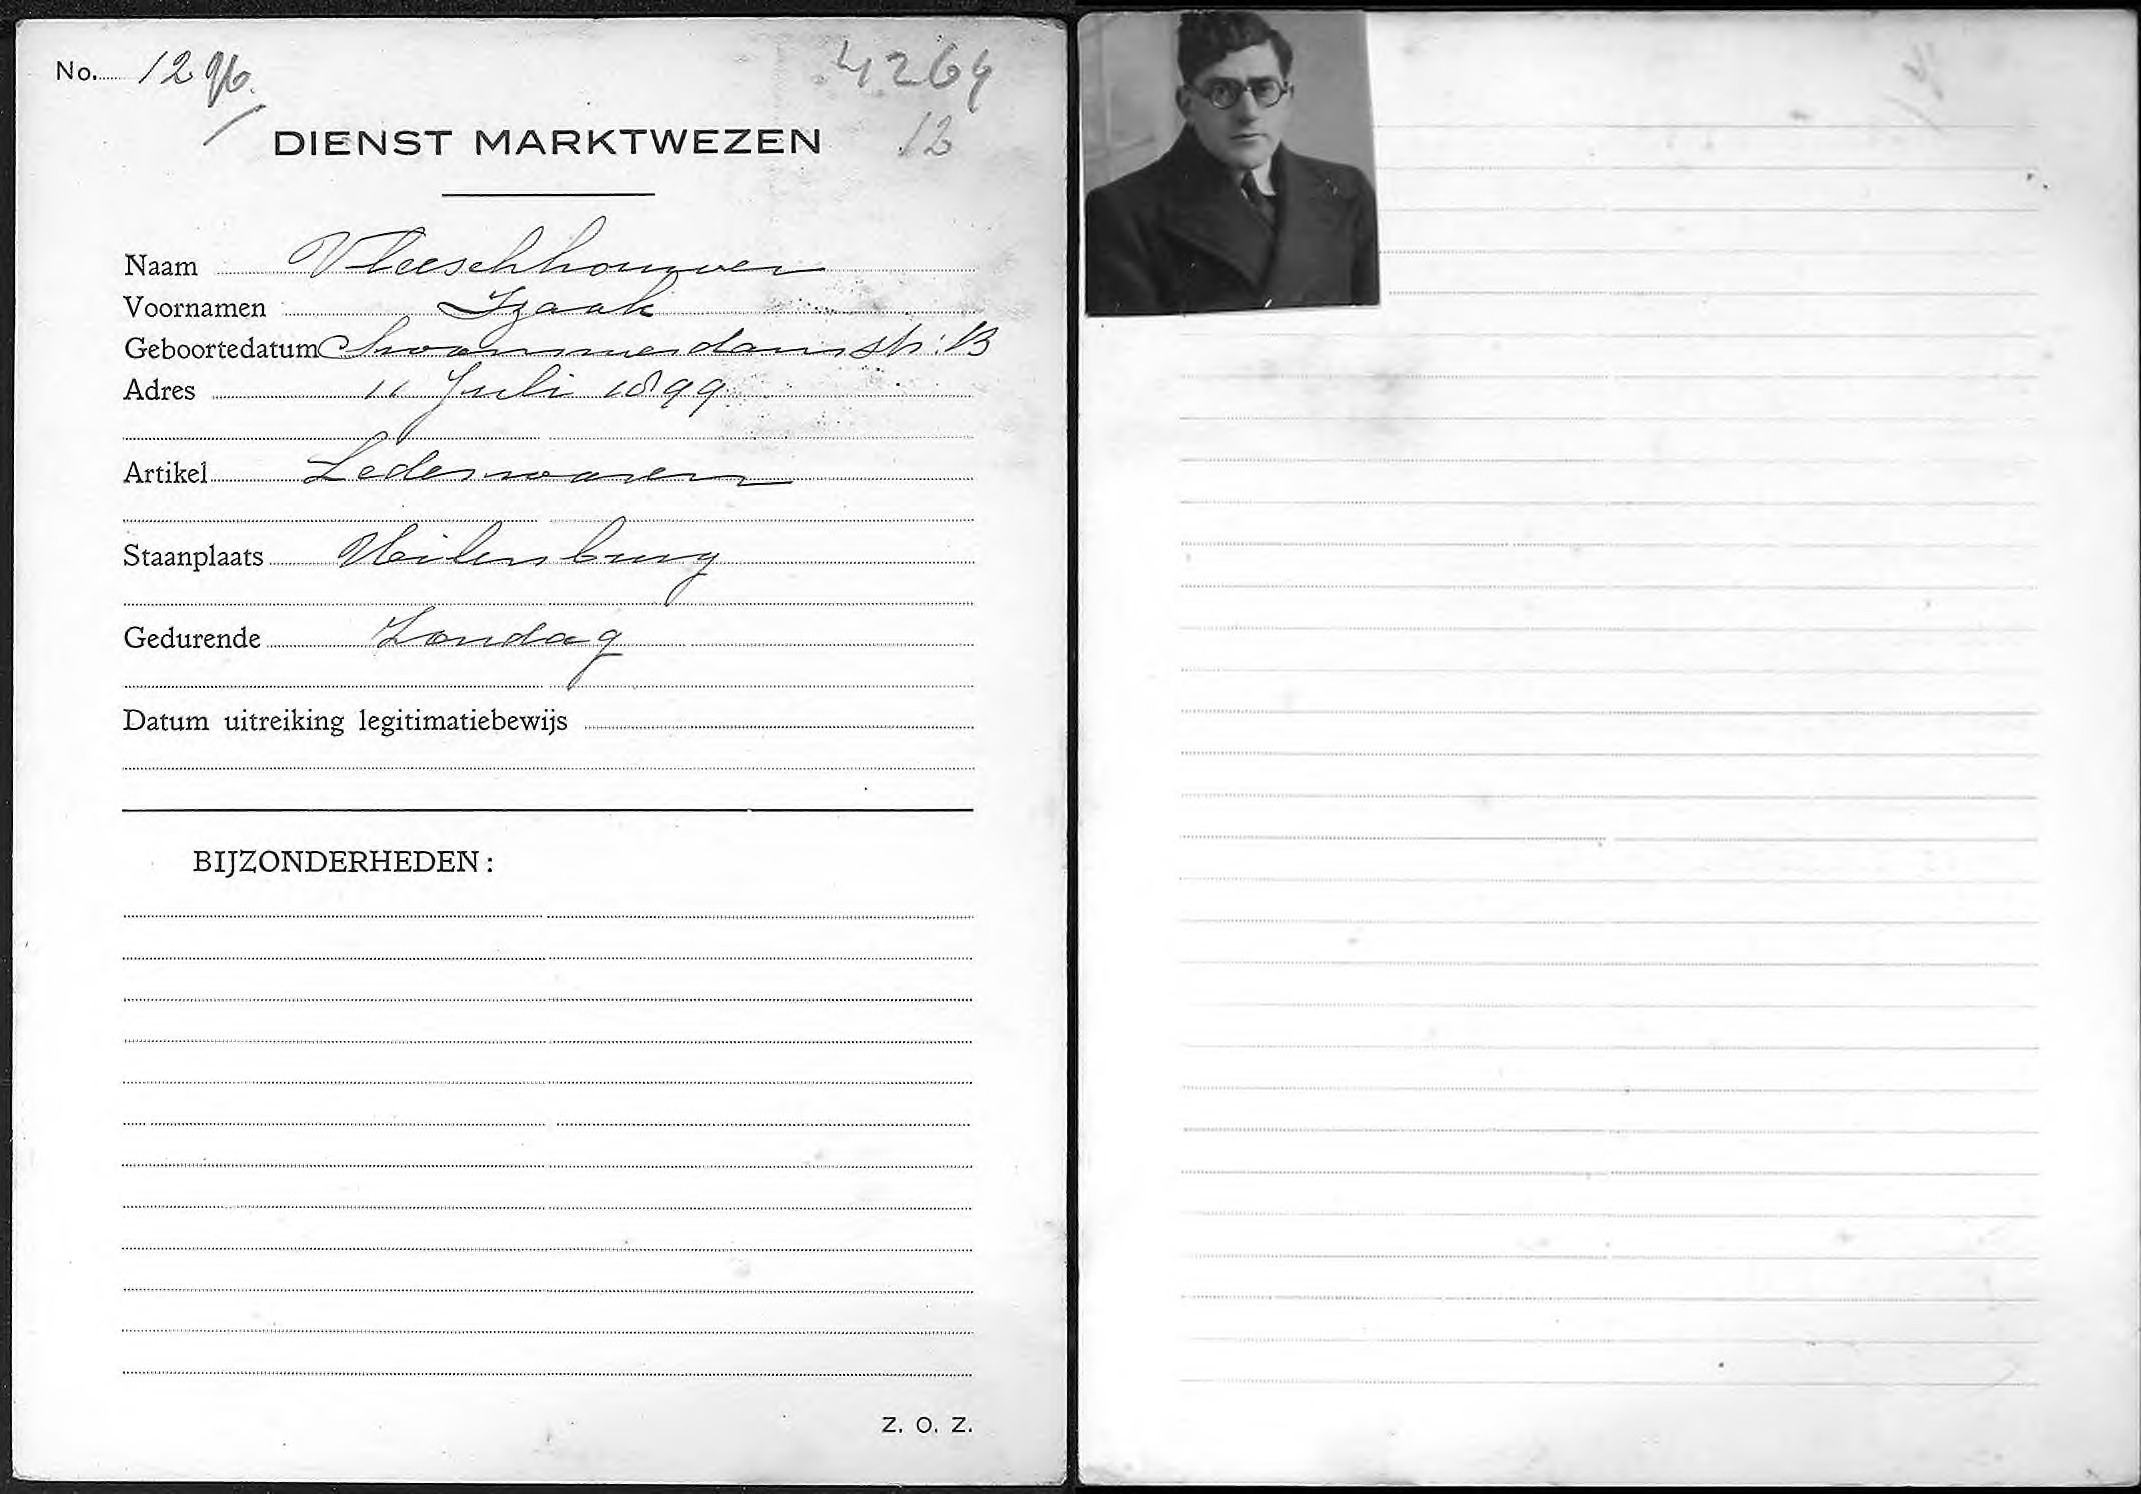 No. 1296.
4264
12
DIENST MARKTWEZEN
Naam Vleeschhouwer
Voornamen Izaak
Geboortedatum Swammerdamstr: 13
Adres 11 Juli 1899
Artikel Lederwaren
Staanplaats Uilenburg
Gedurende Zondag
Datum uitreiking legitimatiebewijs
BIJZONDERHEDEN:
Z. O. Z.